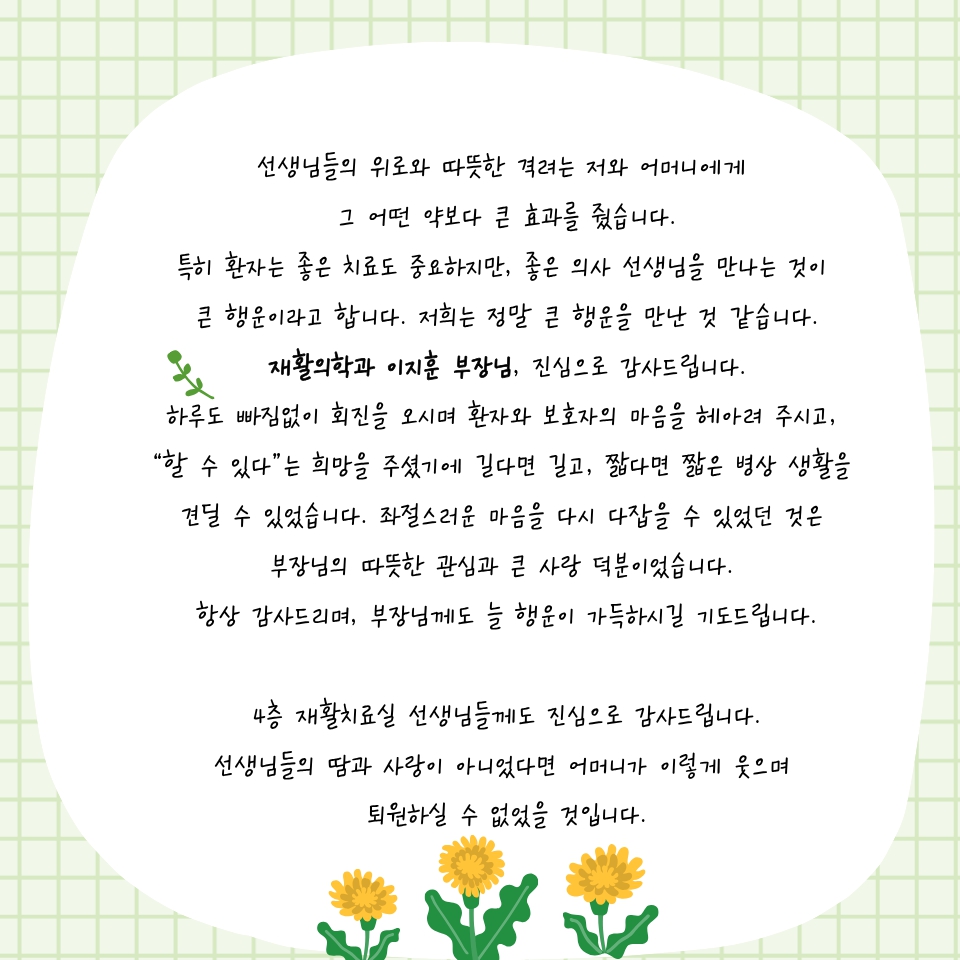 선생님들의 위로와 따뜻한 격려는 저와 어머니에게
그 어떤 약보다 큰 효과를 줬습니다.
특히 환자는 좋은 치료도 중요하지만, 좋은 의사 선생님을 만나는 것이
큰 행운이라고 합니다. 저희는 정말 큰 행운을 만난 것 같습니다.
재활의학과 이지훈 부장님, 진심으로 감사드립니다.
하루도 빠짐없이 회진을 오시며 환자와 보호자의 마음을 헤아려 주시고,
“할 수 있다”는 희망을 주셨기에 길다면 길고, 짧다면 짧은 병상 생활을
견딜 수 있었습니다. 좌절스러운 마음을 다시 다잡을 수 있었던 것은
부장님의 따뜻한 관심과 큰 사랑 덕분이었습니다.
항상 감사드리며, 부장님께도 늘 행운이 가득하시길 기도드립니다.
4층 재활치료실 선생님들께도 진심으로 감사드립니다.
선생님들의 땀과 사랑이 아니었다면 어머니가 이렇게 웃으며
퇴원하실 수 없었을 것입니다.